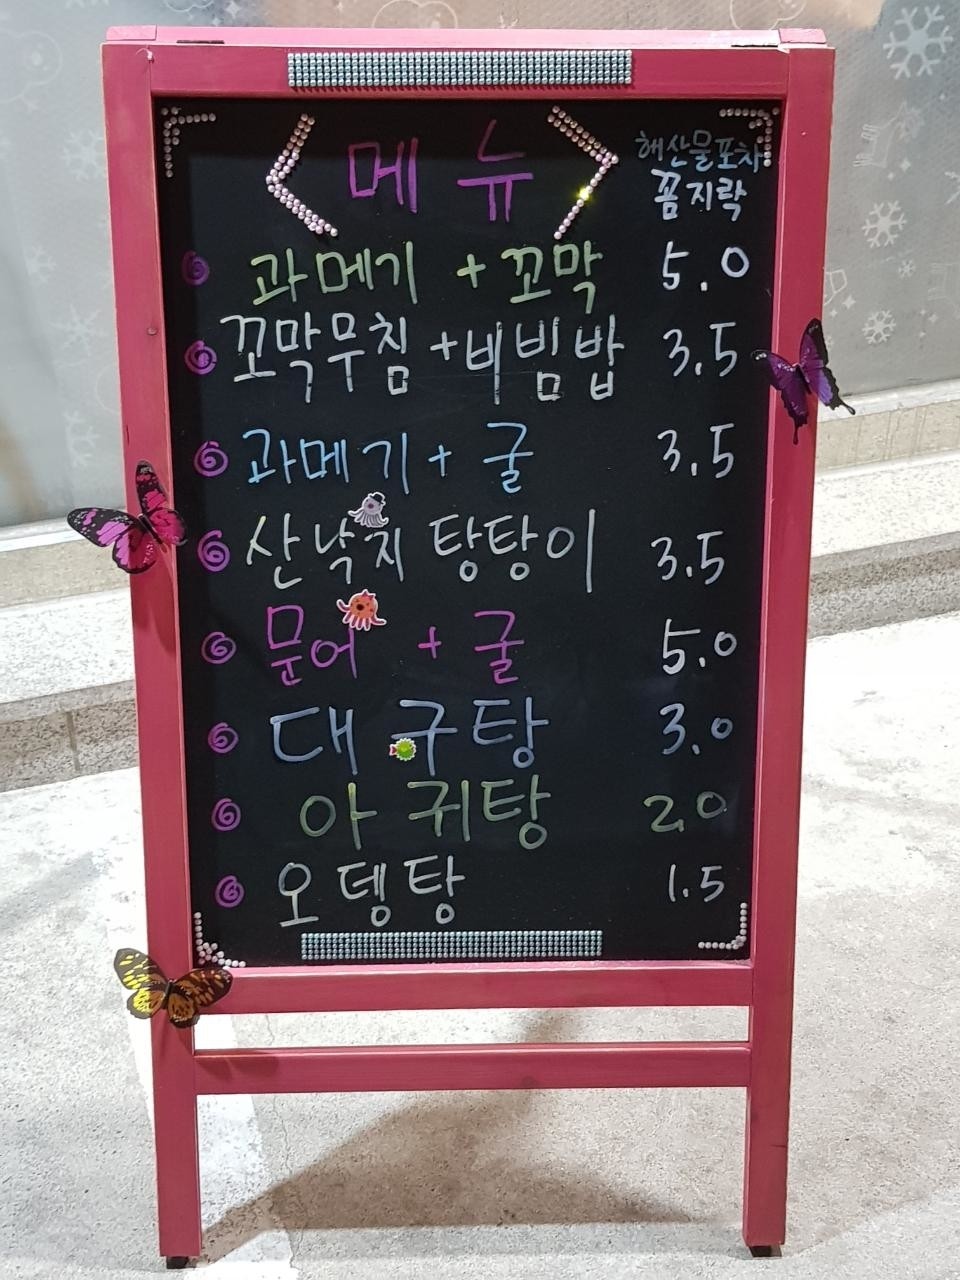 <메뉴>
해산물포차
꼼지락
과메기 + 꼬막 5.0
꼬막무침 + 비빔밥 3.5
과메기 + 굴 3.5
산낙지 탕탕이 3.5
문어 + 굴 5.0
대구탕 3.0
아귀탕 2.0
오뎅탕 1.5